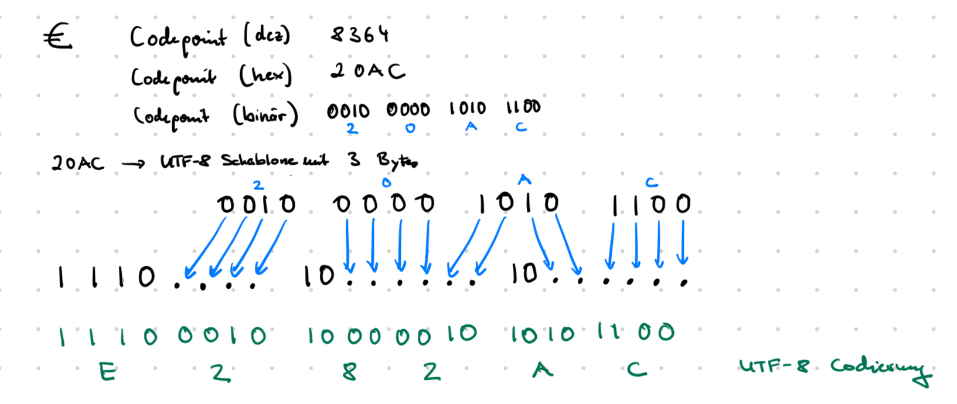 € Codepoint (dez) 8364
Codepoint (hex) 20AC
Codepoint (binär) 0010 0000 1010 1100
2 0 A C
20AC → UTF-8 Schablone mit 3 Bytes
2 0 A C
0010 0000 1010 1100
1110 . . . . 10 . . . . . . 10 . . . . . .
1110 0010 1000 0010 1010 1100
E 2 8 2 A C UTF-8 Codierung